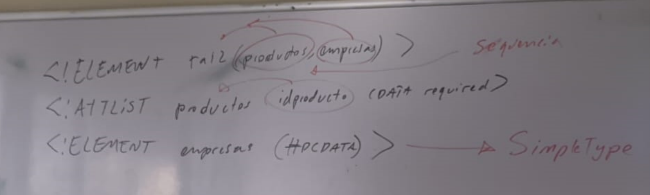 <!ELEMENT raiz (productos, empresas)>
Sequencia
<!ATTLIST productos idproducto CDATA required>
<!ELEMENT empresas (#PCDATA)>
SimpleType